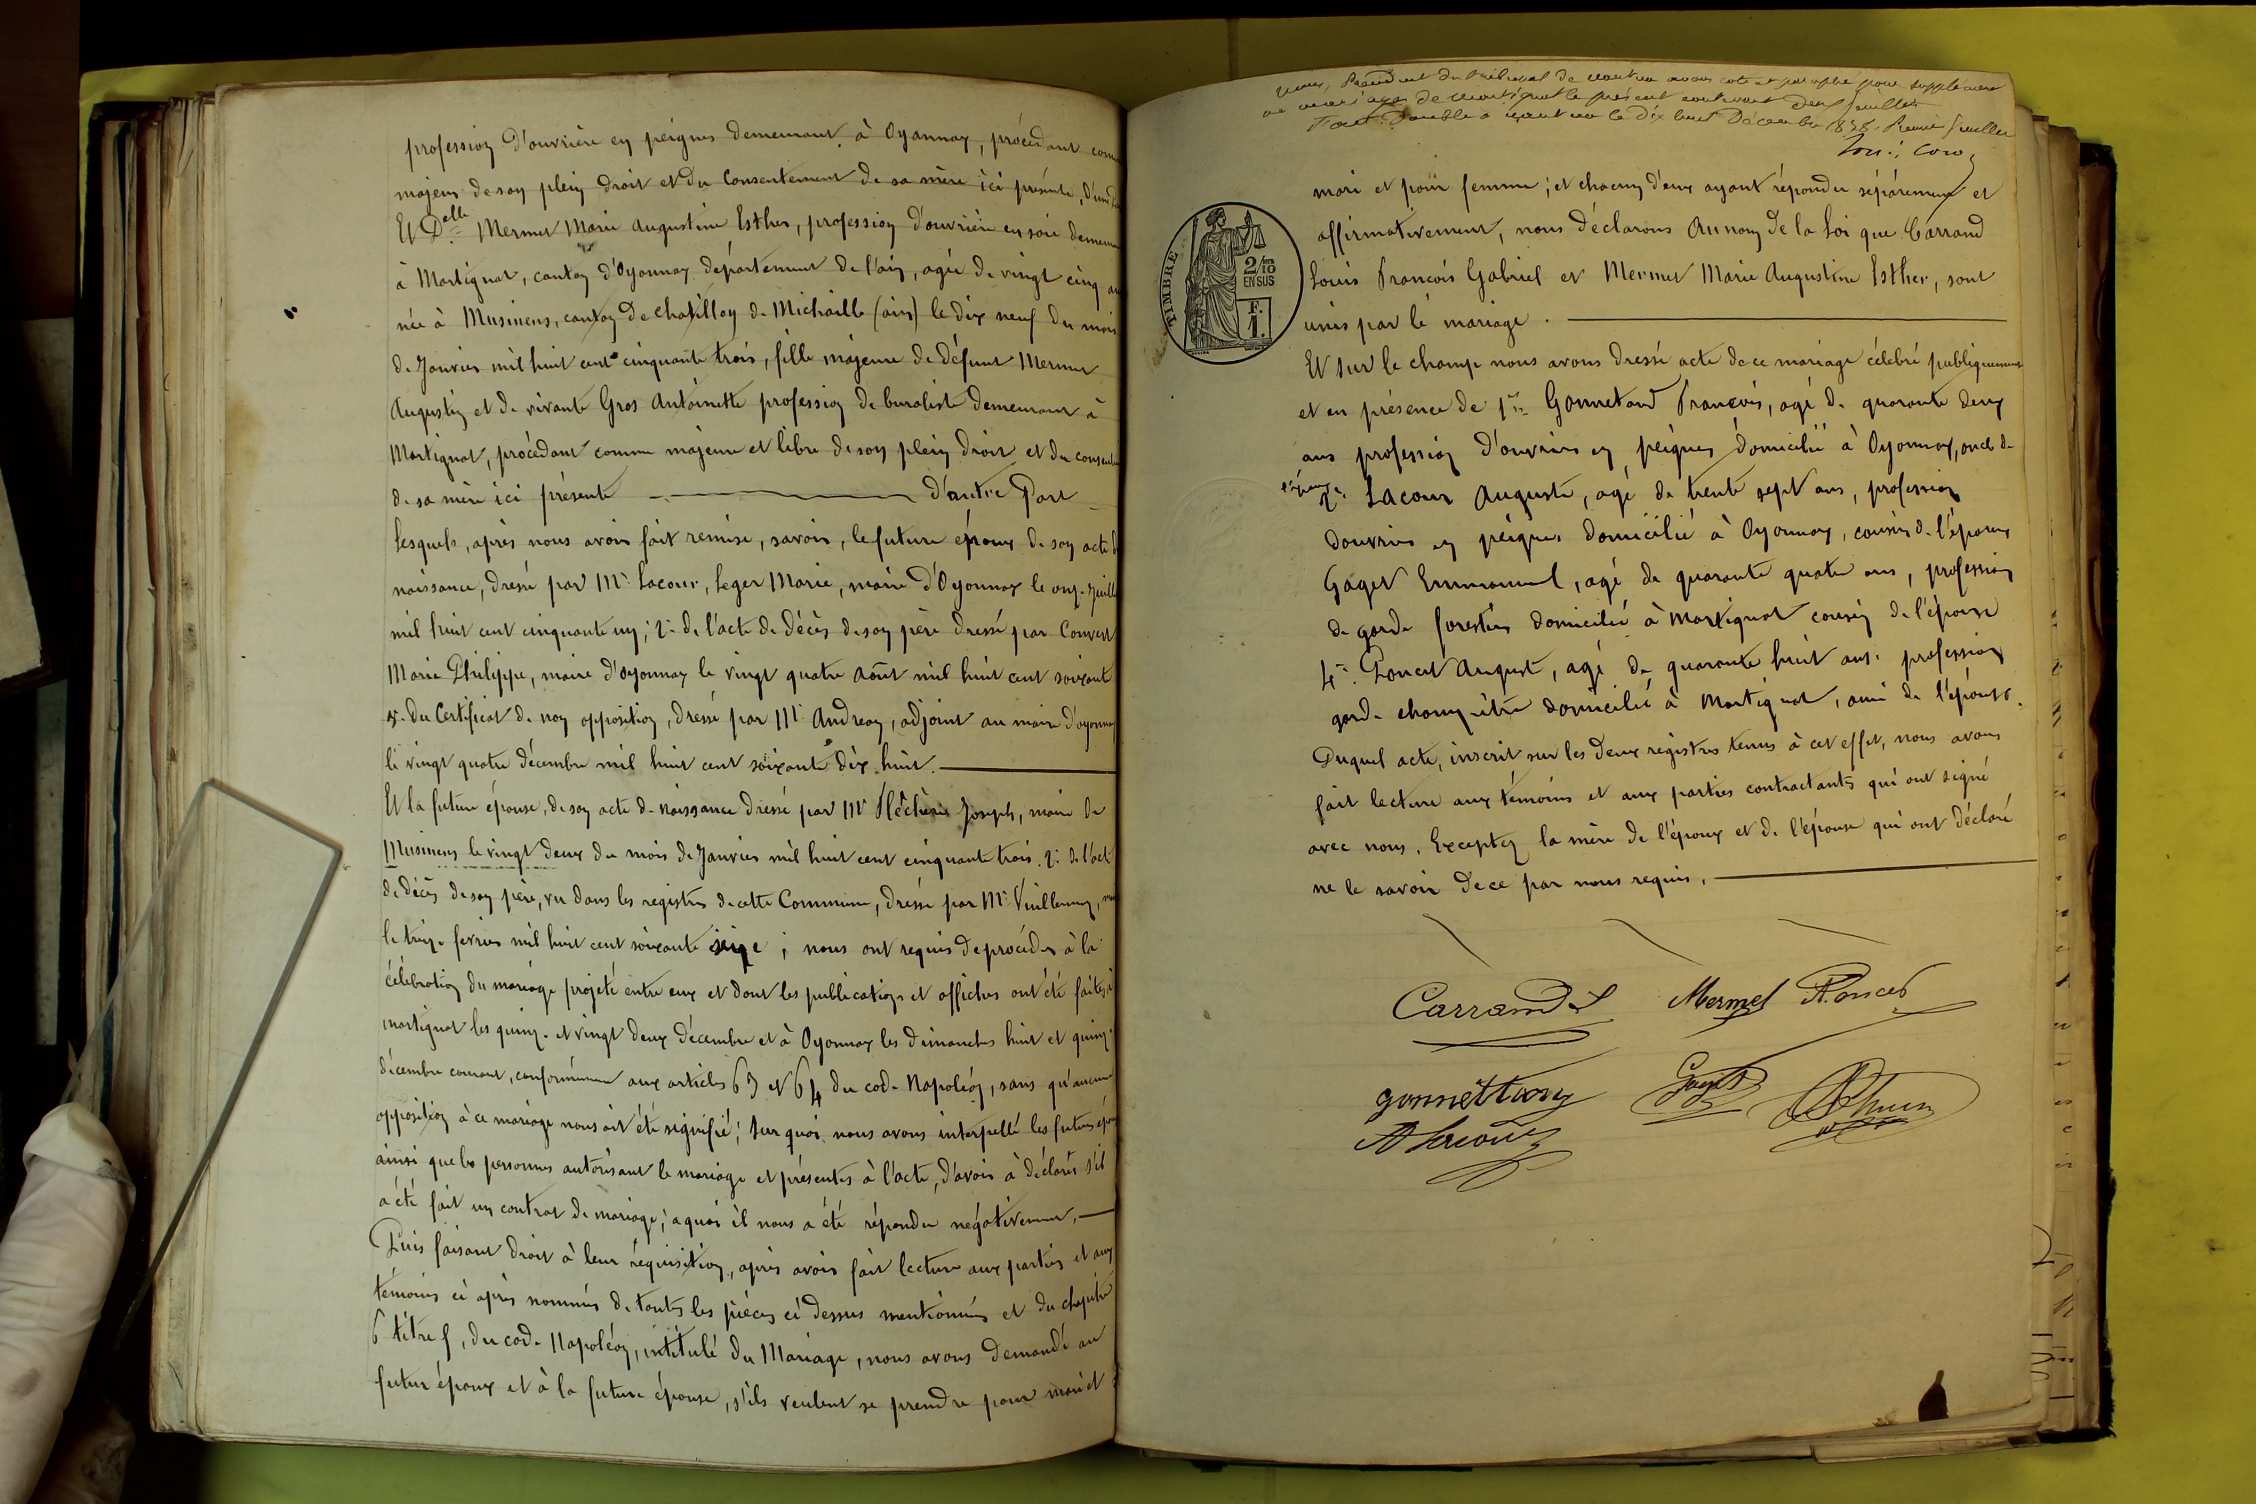 profession d'ouvrière en peignes demeurant à Oyonnax, procédant com
majeur de son plein droit et du Consentement de sa mère ici présente, d'une
Et Delle Mermet Marie Augustine Esther, profession d'ouvrière en soie demeu
à Martignat, canton d'Oyonnax département de l'ain, agée de vingt cinq an
née à Musinens, canton de chatillon de Michaille (ain) le dix neuf du mois
de Janvier mil huit cent cinquante trois, fille majeure de défunt Mermet
Augustin et de vivante Gros Antoinette profession de buraliste demeurant à
Martignat, procédant comme majeure et libre de son plein droit et du consen
de sa mère ici présente d'autre Part
Lesquels, après nous avoir fait remise, savoir, le future époux de son acte d
naissance, dressé par Mr Lacour, Leger Marie, maire d'Oyonnax le onze Juill
mil huit cent cinquante un; 2° de l'acte de décès de son père dressé par Convert
Marie Philippe, maire d'oyonnax le vingt quatre Août mil huit cent soixante
du Certificat de non opposition, dressé par Mr Andreay, adjoint au maire d'oyonnax
le vingt quatre décembre mil huit cent soixante dix huit.
Et la future épouse, de son acte de naissance dressé par Mr Joseph, maire de
Musinens le vingt deux du mois de Janvier mil huit cent cinquante trois. 2° de l'acte
de décès de son père, vu dans les registres de cette Commune, dressé par Mr Vuillermoz,
le treize fevrier mil huit cent soixante seize; nous ont requis de procéder à la
célébration du mariage projeté entre eux et dont les publications et affiches ont été faites à
martignat les quinze et vingt deux décembre et à Oyonnax les dimanches huit et quinze
décembre courant, conformément aux articles 63 et 64 du code Napoléon, sans qu'aucune
opposition à ce mariage nous ait été signifié; sur quoi nous avons interpellé les futurs épou
ainsi que les personnes autorisant le mariage et présentes à l'acte, d'avoir à déclarer s'il
a été fait un contrat de mariage; a quoi il nous a été répondu negativement,
Puis faisant droit à leur réquisition, après avoir fait lecture aux parties et aux
témoins ci après nommés de toutes les pièces ci dessus mentionnés et du chapitre
6 titre 5, du code Napoléon, intitulé du Mariage, nous avons demandé au
futur époux et à la future épouse, s'ils veulent se prendre pour mari et
Nous, Président du tribunal de Nantua avons coté et paraphé pour supplément
de mariages de Martignat le présent contenant deux feuilles
Fait double à Nantua le dix huit Décembre 1878. Premier feuillet
mari et pour femme; et chacun d'eux ayant répondu séparement et
affirmativement, nous déclarons Au nom de la Loi que Carrand
Louis François Gabriel et Mermet Marie Augustine Esther, sont
unis par le mariage.
TIMBRE
2/10
EN SUS
F.
1.
Et sur le champ nous avons dressé acte de ce mariage célébré publiquement
et en présence de 1° Gonnetand François, agé de quarante deux
ans profession d'ouvrier en peignes domicilié à Oyonnax, oncle de
l'époux 2° Lacour Auguste, agé de trente sept ans, profession
d'ouvrier en peignes domicilié à Oyonnax, cousin de l'époux
Gaget Emmanuel, agé de quarante quatre ans, profession
de garde forestier domicilié à Martignat cousin de l'épouse
4° Poncet August, agé de quarante huit ans. profession
garde champêtre domicilié à Martignat, ami de l'épouse.
Duquel acte, inscrit sur les deux registres tenus à cet effet, nous avons
fait lecture aux témoins et aux parties contractants qui ont signé
avec nous. Excepter la mère de l'époux et de l'épouse qui ont déclaré
ne le savoir de ce par nous requis.
Carrand L Mermet A. Poncet
gonnettand Gaget
A Lacour